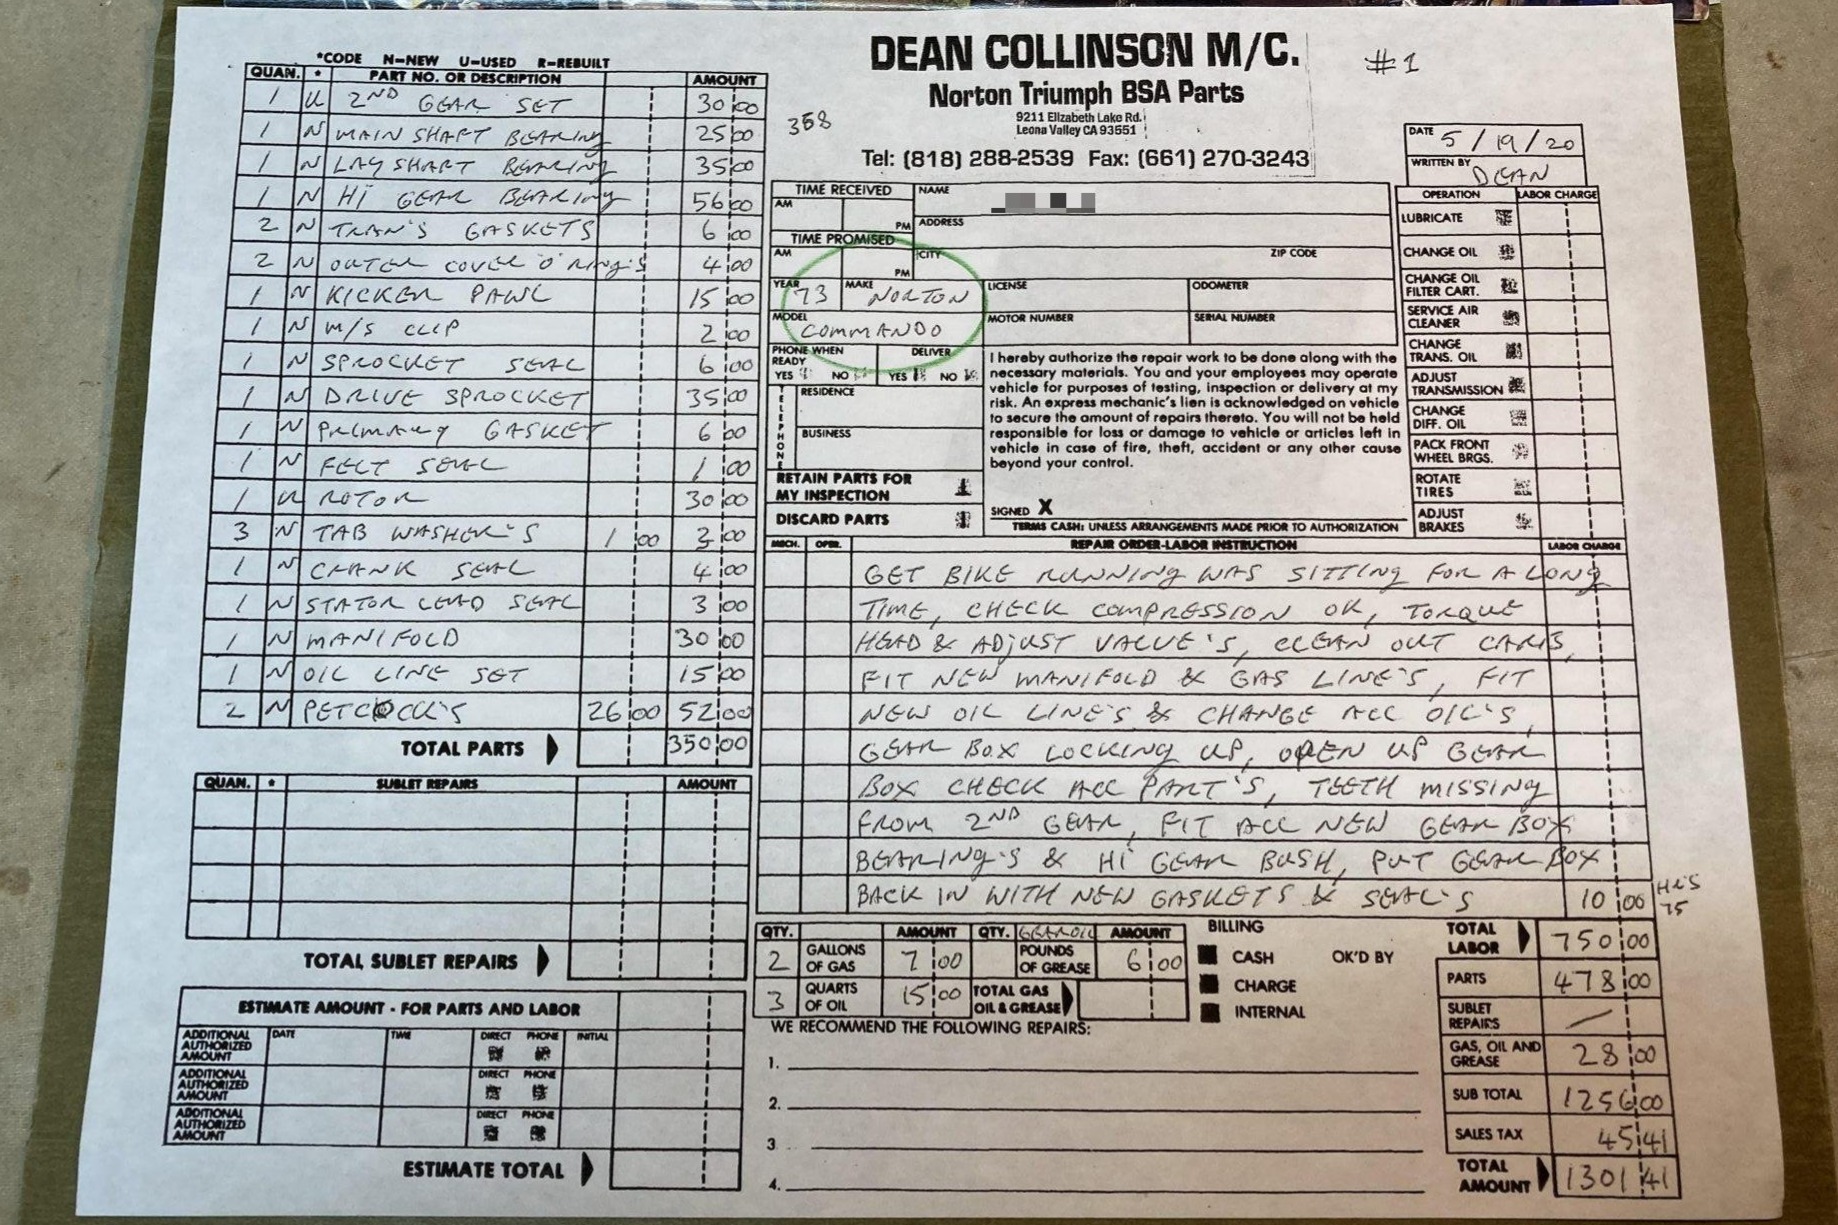 *CODE N-NEW U-USED R-REBUILT
QUAN. * PART NO. OR DESCRIPTION AMOUNT
1 U 2ND GEAR SET 30 00
1 N MAIN SHAFT BEARING 25 00
1 N LAY SHAFT BEARING 35 00
1 N HI GEAR BEARING 56 00
2 N TRAN'S GASKETS 6 00
2 N OUTER COVER 'O' RING'S 4 00
1 N KICKER PAWL 15 00
1 N M/S CLIP 2 00
1 N SPROCKET SEAL 6 00
1 N DRIVE SPROCKET 35 00
1 N PRIMARY GASKET 6 00
1 N FELT SEAL 1 00
1 U ROTOR 30 00
3 N TAB WASHER'S 1 00 3 00
1 N CRANK SEAL 4 00
1 N STATOR LEAD SEAL 3 00
1 N MANIFOLD 30 00
1 N OIL LINE SET 15 00
2 N PETCOCK'S 26 00 52 00
TOTAL PARTS 350 00
QUAN. * SUBLET REPAIRS AMOUNT
TOTAL SUBLET REPAIRS
ESTIMATE AMOUNT - FOR PARTS AND LABOR
ADDITIONAL AUTHORIZED AMOUNT DATE TIME DIRECT PHONE INITIAL
ADDITIONAL AUTHORIZED AMOUNT DIRECT PHONE
ADDITIONAL AUTHORIZED AMOUNT DIRECT PHONE
ESTIMATE TOTAL
DEAN COLLINSON M/C.
#1
Norton Triumph BSA Parts
358
9211 Elizabeth Lake Rd.
Leona Valley CA 93551
Tel: (818) 288-2539 Fax: (661) 270-3243
DATE 5/19/20
WRITTEN BY DEAN
TIME RECEIVED
AM PM
NAME
ADDRESS
TIME PROMISED
AM PM
CITY ZIP CODE
YEAR 73 MAKE NORTON
LICENSE ODOMETER
MODEL COMMANDO
MOTOR NUMBER SERIAL NUMBER
PHONE WHEN READY DELIVER
YES NO YES NO
TELEPHONE
RESIDENCE
BUSINESS
RETAIN PARTS FOR
MY INSPECTION
DISCARD PARTS
I hereby authorize the repair work to be done along with the
necessary materials. You and your employees may operate
vehicle for purposes of testing, inspection or delivery at my
risk. An express mechanic's lien is acknowledged on vehicle
to secure the amount of repairs thereto. You will not be held
responsible for loss or damage to vehicle or articles left in
vehicle in case of fire, theft, accident or any other cause
beyond your control.
SIGNED X
TERMS CASH: UNLESS ARRANGEMENTS MADE PRIOR TO AUTHORIZATION
OPERATION LABOR CHARGE
LUBRICATE
CHANGE OIL
CHANGE OIL
FILTER CART.
SERVICE AIR
CLEANER
CHANGE
TRANS. OIL
ADJUST
TRANSMISSION
CHANGE
DIFF. OIL
PACK FRONT
WHEEL BRGS.
ROTATE
TIRES
ADJUST
BRAKES
MECH. OPER. REPAIR ORDER-LABOR INSTRUCTION LABOR CHARGE
GET BIKE RUNNING WAS SITTING FOR A LONG
TIME, CHECK COMPRESSION OK, TORQUE
HEAD & ADJUST VALUE'S, CLEAN OUT CARBS,
FIT NEW MANIFOLD & GAS LINE'S, FIT
NEW OIL LINE'S & CHANGE ALL OIL'S,
GEAR BOX LOCKING UP, OPEN UP GEAR
BOX CHECK ALL PART'S, TEETH MISSING
FROM 2ND GEAR, FIT ALL NEW GEAR BOX
BEARING'S & HI GEAR BUSH, PUT GEAR BOX
BACK IN WITH NEW GASKETS & SEAL'S 10 00 HR'S 75
QTY. AMOUNT QTY. GEAR OIL AMOUNT
2 GALLONS OF GAS 7 00 POUNDS OF GREASE 6 00
3 QUARTS OF OIL 15 00 TOTAL GAS OIL & GREASE
BILLING
CASH OK'D BY
CHARGE
INTERNAL
WE RECOMMEND THE FOLLOWING REPAIRS:
1.
2.
3
4.
TOTAL LABOR 750 00
PARTS 478 00
SUBLET REPAIRS —
GAS, OIL AND GREASE 28 00
SUB TOTAL 1256 00
SALES TAX 45 41
TOTAL AMOUNT 1301 41